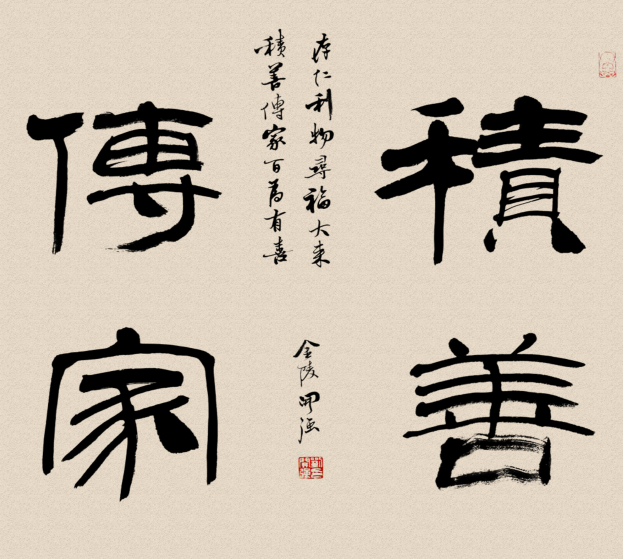 積善
傳家
存仁利物尋福大來
積善傳家百為有喜
金陵